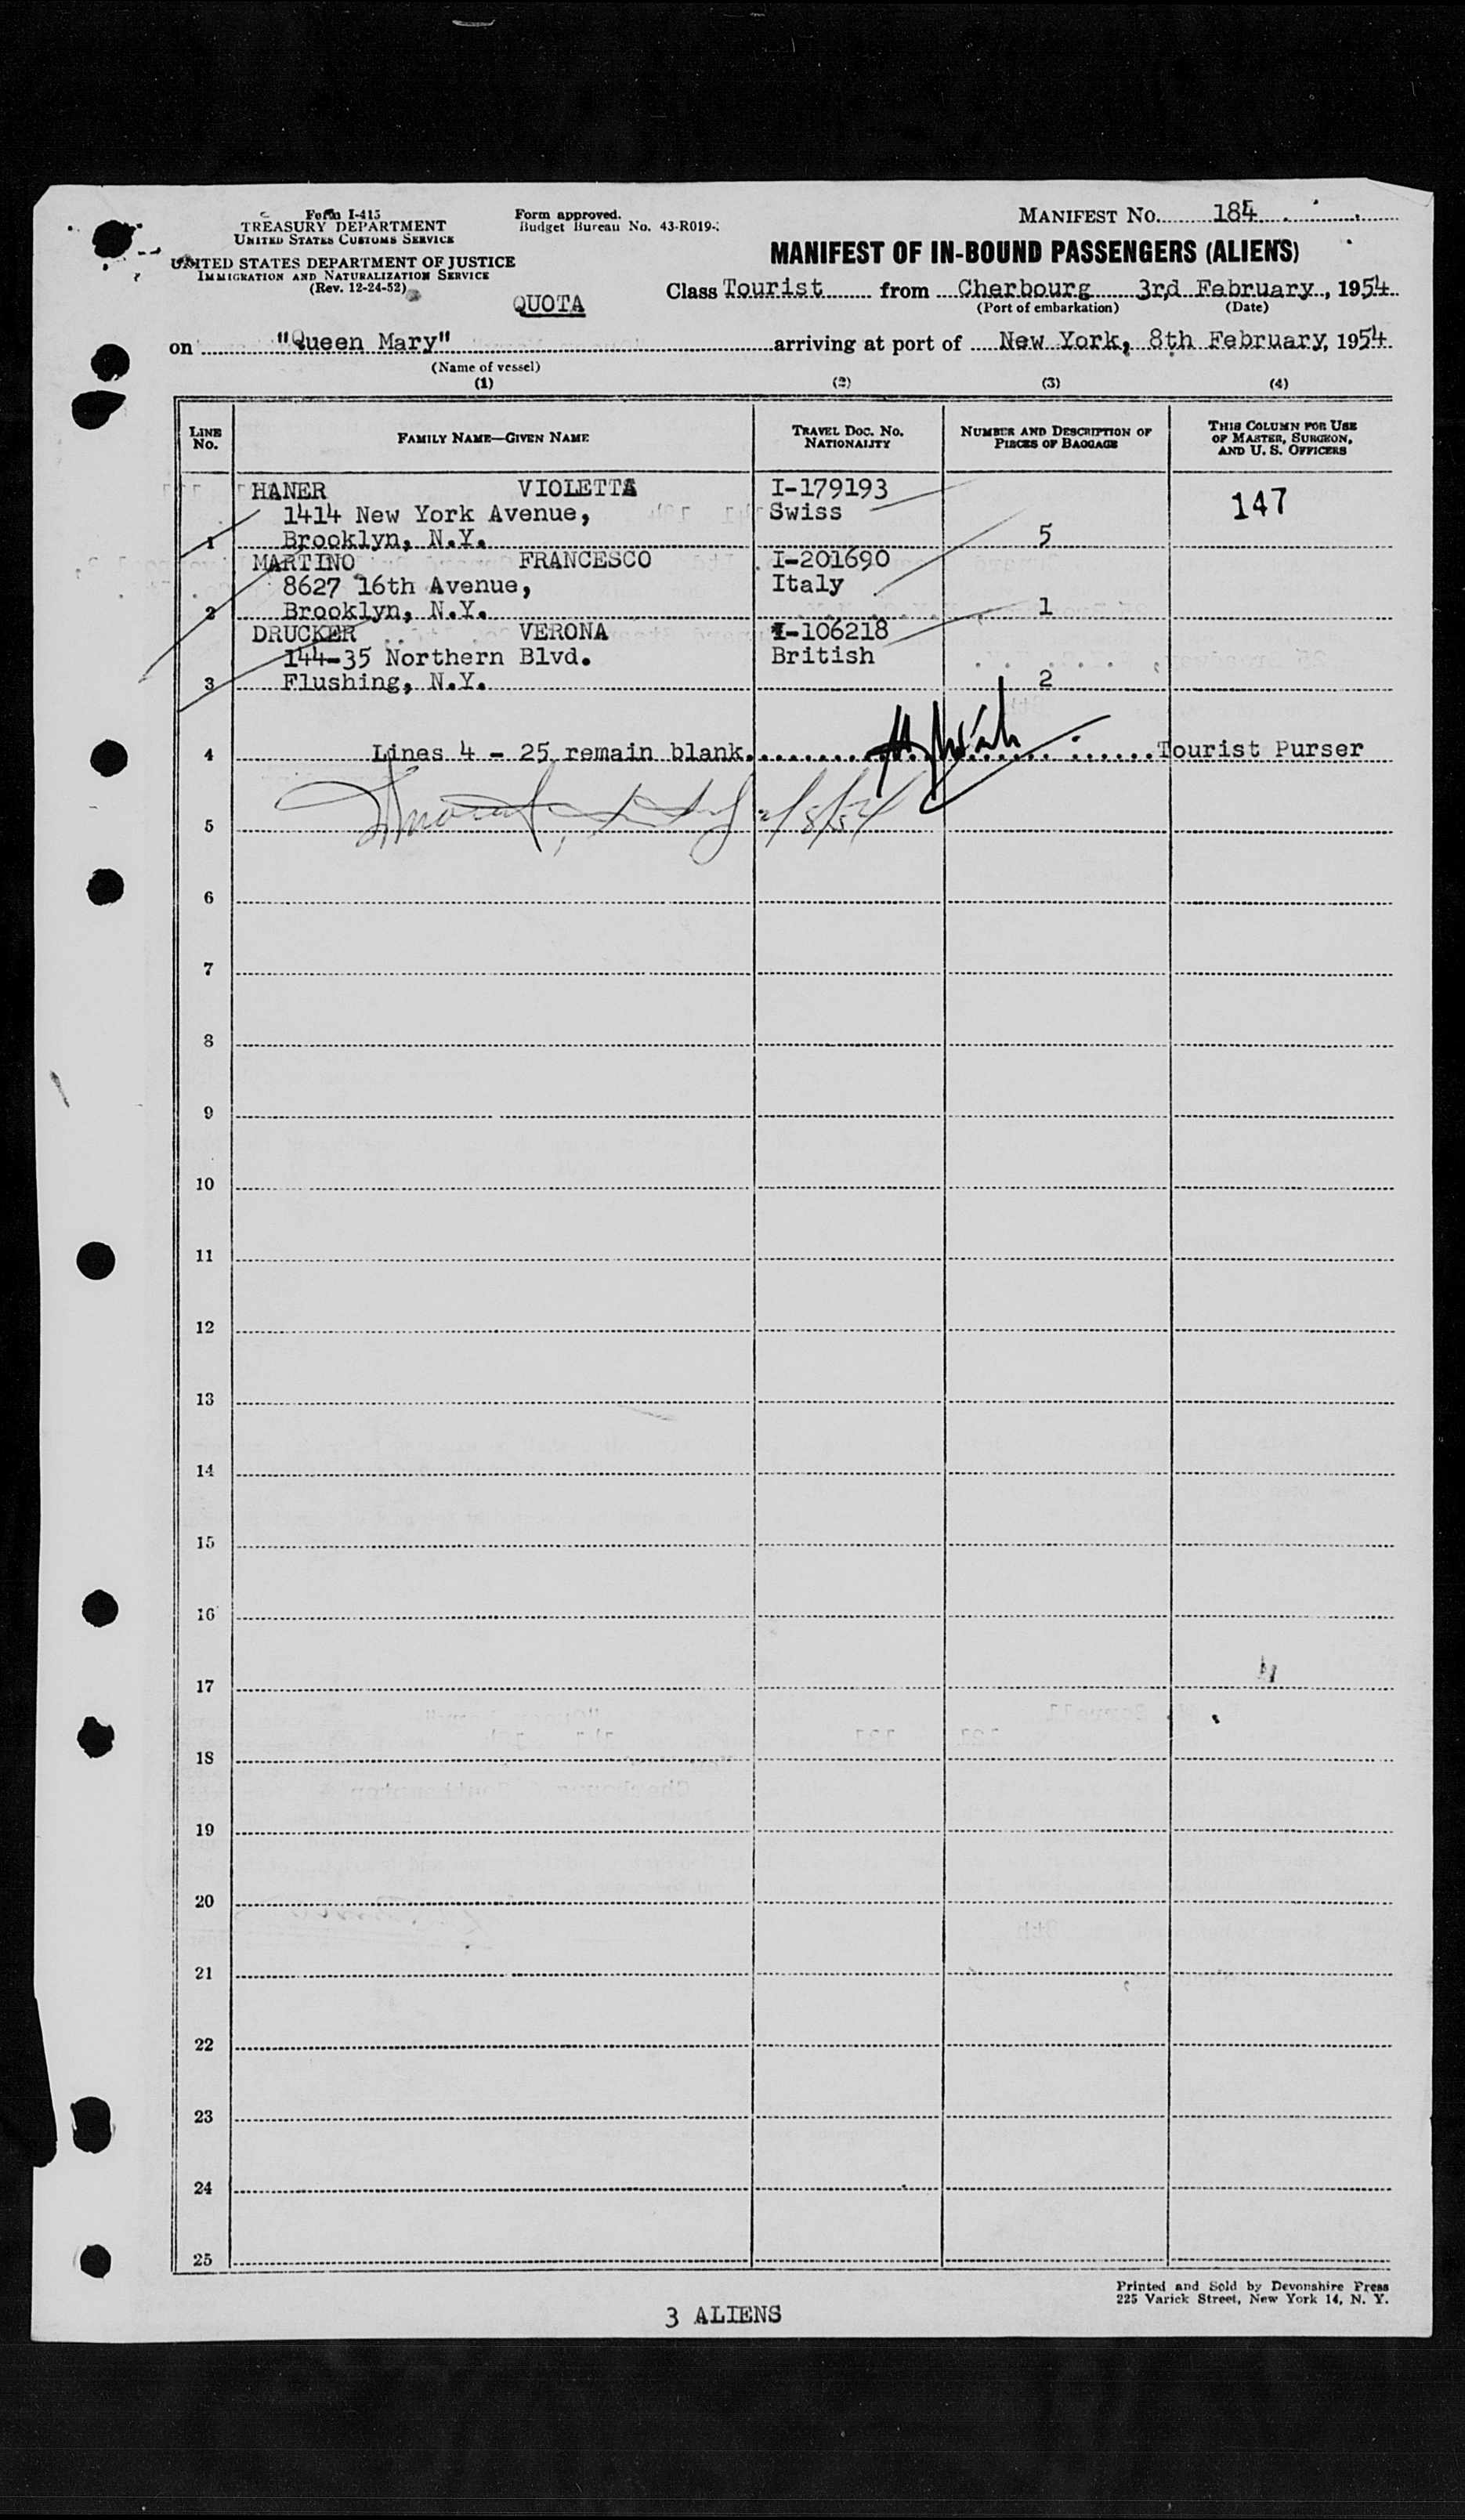 Form I-415
TREASURY DEPARTMENT
UNITED STATES CUSTOMS SERVICE
UNITED STATES DEPARTMENT OF JUSTICE
IMMIGRATION AND NATURALIZATION SERVICE
(Rev. 12-24-52)
Form approved.
Budget Bureau No. 43-R019-
QUOTA
MANIFEST NO. 184
MANIFEST OF IN-BOUND PASSENGERS (ALIENS)
Class Tourist from Cherbourg 3rd February, 1954
(Port of embarkation) (Date)
on "Queen Mary" arriving at port of New York, 8th February, 1954
(Name of vessel)
(1) (2) (3) (4)
LINE NO. FAMILY NAME—GIVEN NAME TRAVEL DOC. NO. NATIONALITY NUMBER AND DESCRIPTION OF PIECES OF BAGGAGE THIS COLUMN FOR USE OF MASTER, SURGEON, AND U. S. OFFICERS
HANER VIOLETTA I-179193
1414 New York Avenue, Swiss 147
1 Brooklyn, N.Y. 5
MARTINO FRANCESCO I-201690
8627 16th Avenue, Italy
2 Brooklyn, N.Y. 1
DRUCKER VERONA I-106218
144-35 Northern Blvd. British
3 Flushing, N.Y. 2
4 Lines 4 - 25 remain blank. Tourist Purser
5 2/8/54
6
7
8
9
10
11
12
13
14
15
16
17
18
19
20
21
22
23
24
25
Printed and Sold by Devonshire Press
225 Varick Street, New York 14, N. Y.
3 ALIENS